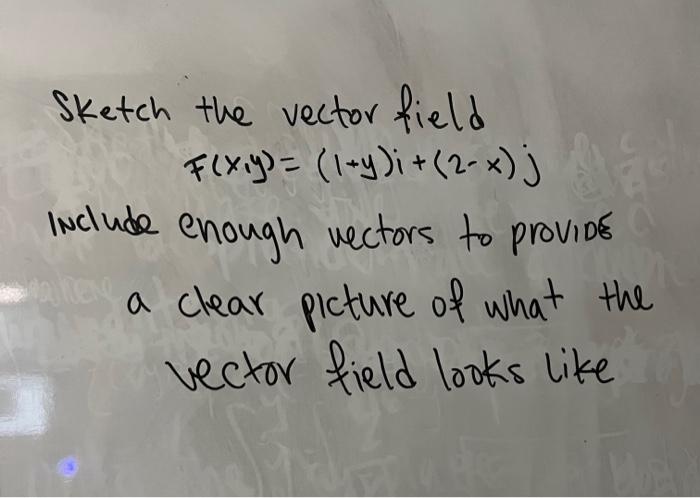 Sketch the vector field
F(x,y) = (1+y)i + (2-x)j
Include enough vectors to provide
a clear picture of what the
vector field looks like